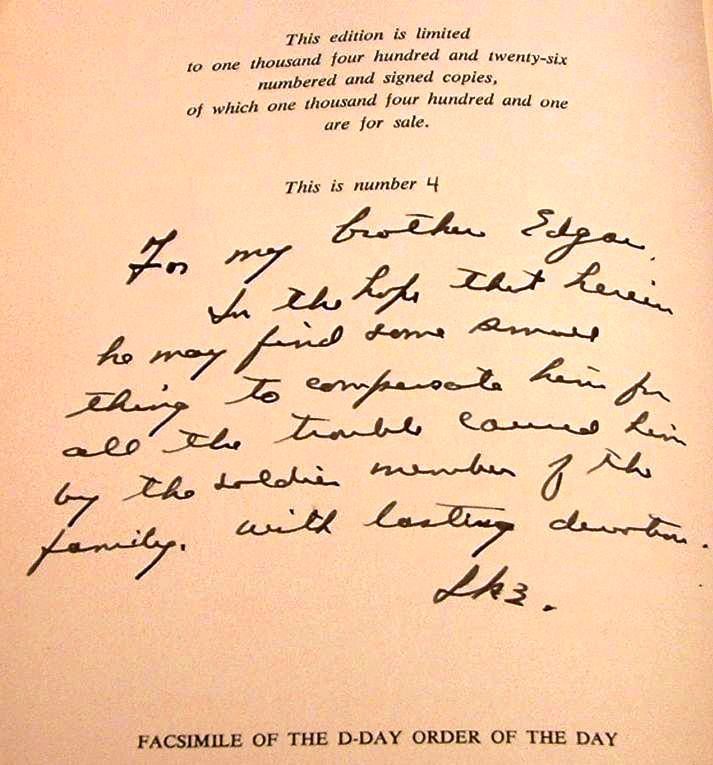 This edition is limited
to one thousand four hundred and twenty-six
numbered and signed copies,
of which one thousand four hundred and one
are for sale.
This is number 4
For my brother Edgar.
In the hope that herein
he may find some small
thing to compensate him for
all the trouble caused him
by the soldier member of the
family. With lasting devotion.
Ike.
FACSIMILE OF THE D-DAY ORDER OF THE DAY